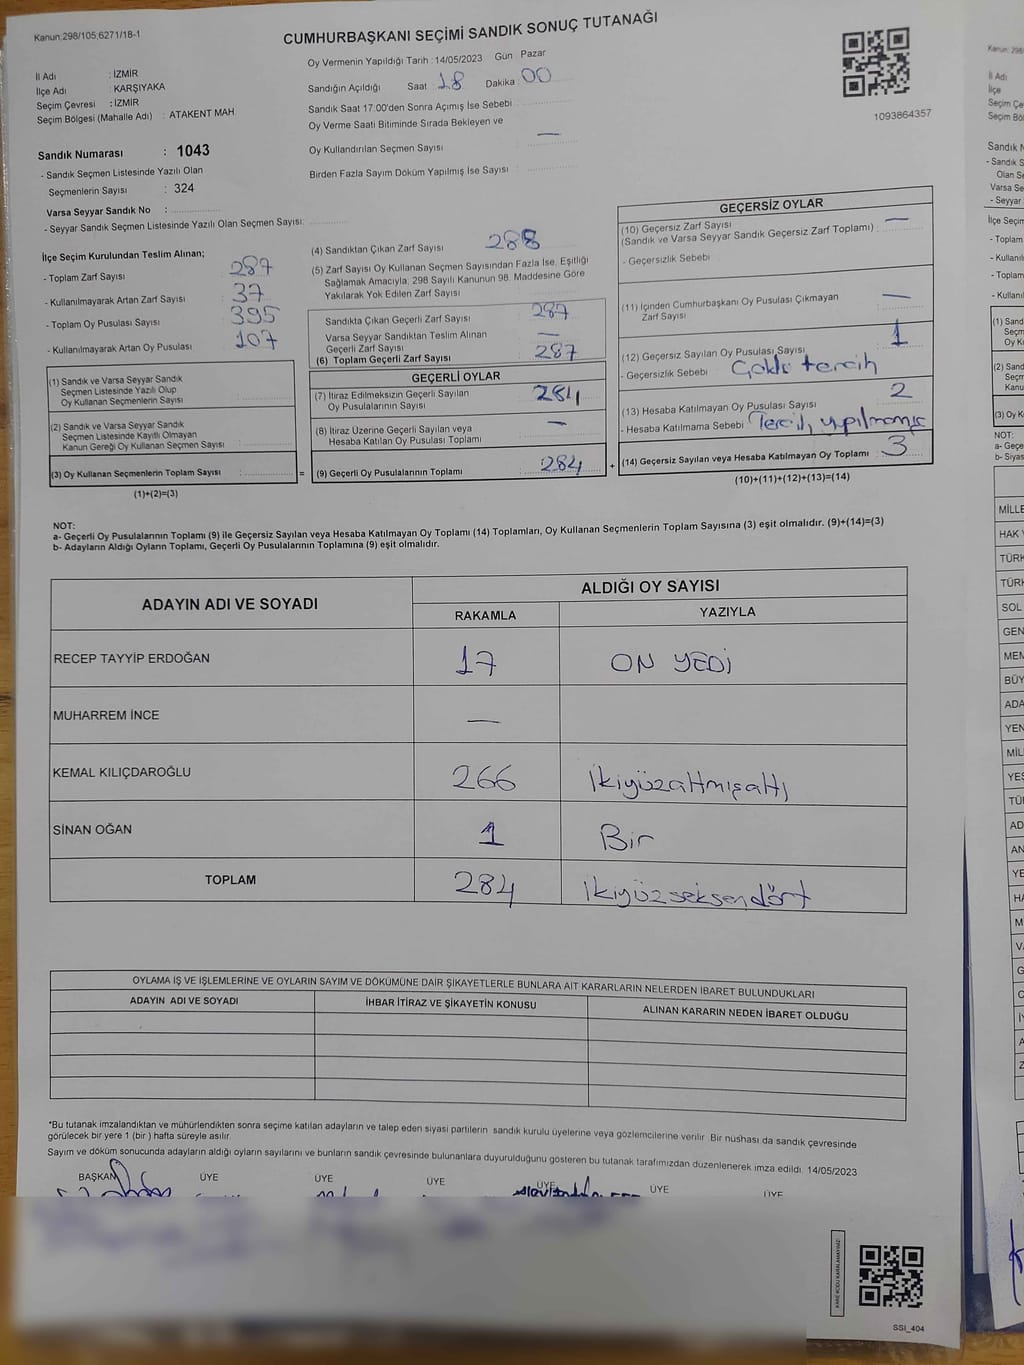 Kanun:298/105;6271/18-1
CUMHURBAŞKANI SEÇİMİ SANDIK SONUÇ TUTANAĞI
İl Adı : İZMİR
İlçe Adı : KARŞIYAKA
Seçim Çevresi : İZMİR
Seçim Bölgesi (Mahalle Adı) : ATAKENT MAH
Oy Vermenin Yapıldığı Tarih :14/05/2023 Gün Pazar
Sandığın Açıldığı Saat : 18 Dakika 00
Sandık Saat 17:00'den Sonra Açımış İse Sebebi
Oy Verme Saati Bitiminde Sırada Bekleyen ve
Oy Kullandırılan Seçmen Sayısı : —
Birden Fazla Sayım Döküm Yapılmış İse Sayısı :
1093864357
Sandık Numarası : 1043
- Sandık Seçmen Listesinde Yazılı Olan
Seçmenlerin Sayısı : 324
Varsa Seyyar Sandık No :
- Seyyar Sandık Seçmen Listesinde Yazılı Olan Seçmen Sayısı:
İlçe Seçim Kurulundan Teslim Alınan;
- Toplam Zarf Sayısı : 287
- Kullanılmayarak Artan Zarf Sayısı : 37
- Toplam Oy Pusulası Sayısı : 395
- Kullanılmayarak Artan Oy Pusulası : 107
(1) Sandık ve Varsa Seyyar Sandık
Seçmen Listesinde Yazılı Olup
Oy Kullanan Seçmenlerin Sayısı :
(2) Sandık ve Varsa Seyyar Sandık
Seçmen Listesinde Kayıtlı Olmayan
Kanun Gereği Oy Kullanan Seçmen Sayısı :
(3) Oy Kullanan Seçmenlerin Toplam Sayısı : =
(1)+(2)=(3)
(4) Sandıktan Çıkan Zarf Sayısı : 288
(5) Zarf Sayısı Oy Kullanan Seçmen Sayısından Fazla İse, Eşitliği
Sağlamak Amacıyla, 298 Sayılı Kanunun 98. Maddesine Göre
Yakılarak Yok Edilen Zarf Sayısı :
Sandıkta Çıkan Geçerli Zarf Sayısı : 287
Varsa Seyyar Sandıktan Teslim Alınan
Geçerli Zarf Sayısı : —
(6) Toplam Geçerli Zarf Sayısı : 287
GEÇERLİ OYLAR
(7) İtiraz Edilmeksizin Geçerli Sayılan
Oy Pusulalarının Sayısı : 284
(8) İtiraz Üzerine Geçerli Sayılan veya
Hesaba Katılan Oy Pusulası Toplamı : —
(9) Geçerli Oy Pusulalarının Toplamı : 284 +
GEÇERSİZ OYLAR
(10) Geçersiz Zarf Sayısı
(Sandık ve Varsa Seyyar Sandık Geçersiz Zarf Toplamı) : —
- Geçersizlik Sebebi :
(11) İçinden Cumhurbaşkanı Oy Pusulası Çıkmayan
Zarf Sayısı : —
(12) Geçersiz Sayılan Oy Pusulası Sayısı : 1
- Geçersizlik Sebebi : Çoklu tercih
(13) Hesaba Katılmayan Oy Pusulası Sayısı : 2
- Hesaba Katılmama Sebebi : Tercih yapılmamış
(14) Geçersiz Sayılan veya Hesaba Katılmayan Oy Toplamı : 3
(10)+(11)+(12)+(13)=(14)
NOT:
a- Geçerli Oy Pusulalarının Toplamı (9) ile Geçersiz Sayılan veya Hesaba Katılmayan Oy Toplamı (14) Toplamları, Oy Kullanan Seçmenlerin Toplam Sayısına (3) eşit olmalıdır. (9)+(14)=(3)
b- Adayların Aldığı Oyların Toplamı, Geçerli Oy Pusulalarının Toplamına (9) eşit olmalıdır.
ADAYIN ADI VE SOYADI
ALDIĞI OY SAYISI
RAKAMLA YAZIYLA
RECEP TAYYİP ERDOĞAN 17 ON YEDİ
MUHARREM İNCE —
KEMAL KILIÇDAROĞLU 266 ikiyüzaltmışaltı
SİNAN OĞAN 1 Bir
TOPLAM 284 ikiyüzseksendört
OYLAMA İŞ VE İŞLEMLERİNE VE OYLARIN SAYIM VE DÖKÜMÜNE DAİR ŞİKAYETLERLE BUNLARA AİT KARARLARIN NELERDEN İBARET BULUNDUKLARI
ADAYIN ADI VE SOYADI İHBAR İTİRAZ VE ŞİKAYETİN KONUSU ALINAN KARARIN NEDEN İBARET OLDUĞU
*Bu tutanak imzalandıktan ve mühürlendikten sonra seçime katılan adayların ve talep eden siyasi partilerin sandık kurulu üyelerine veya gözlemcilerine verilir. Bir nushası da sandık çevresinde
görülecek bir yere 1 (bir ) hafta süreyle asılır.
Sayım ve döküm sonucunda adayların aldığı oyların sayılarını ve bunların sandık çevresinde bulunanlara duyurulduğunu gösteren bu tutanak tarafımızdan düzenlenerek imza edildi. 14/05/2023
BAŞKAN ÜYE ÜYE ÜYE ÜYE ÜYE ÜYE
SSI_404